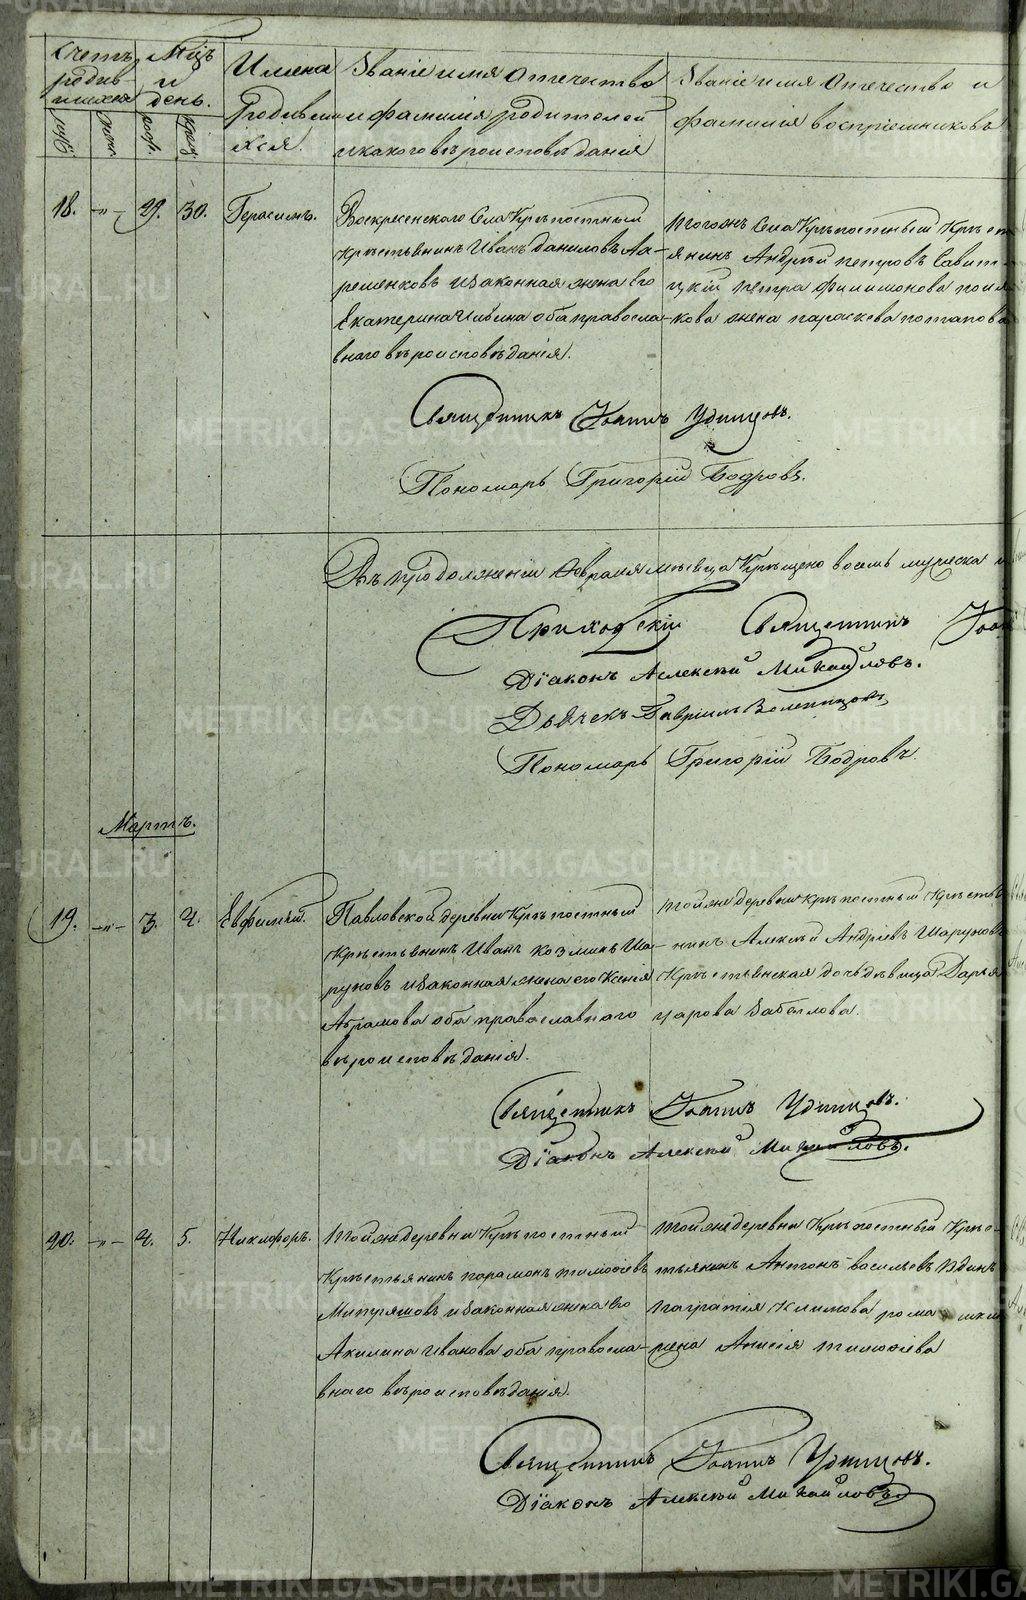 Счетъ родив-шихся
Мцъ и день.
Имена Родившихся.
Званіе имя отечество и фамилія родителей и какого вѣроисповѣданія
Званіе имя отечество и фамилія воспріемниковъ
18. -„- 29. 30. Герасимъ.
Воскресенскаго Села Крѣпостный
Крѣстьянинъ Иванъ Даниловъ
и законная жена его
Екатерина Ильина оба правосла-
внаго вѣроисповѣданія.
тогожъ Села Крѣпостный Крѣст
янинъ Андрѣй Петровъ Савит-
цкій Петра Филимонова
кова жена Параскева Потапова
Священникъ Іоаннъ Удинцовъ.
Пономарь Григорій Бодровъ.
Въ продолженіи Февраля мѣсяца Крѣщено восемь мужеска
Приходскій Священникъ
Діаконъ Алексѣй Михайловъ.
Дьячекъ Гавріилъ
Пономарь Григорій Бодровъ.
Мартъ.
19. -„- 3. 4. Евфимій.
Павловской деревни Крѣпостный
Крѣстьянинъ Иванъ Козминъ Ша-
руновъ и законная жена его Ксенія
Абрамова оба православнаго
вѣроисповѣданія.
тойже деревни крѣпостный Крѣстья
нинъ Алексѣй Андріевъ Шаруновъ
Крѣстьянская дочь дѣвица Дарья
Священникъ Іоаннъ Удинцовъ.
Діаконъ Алексѣй Михайловъ.
20. -„- 4. 5. Никифоръ.
тойже деревни Крѣпостный
Крѣстьянинъ Парамонъ Тимофіевъ
и законная жена его
Акилина Иванова оба правосла-
внаго вѣроисповѣданія.
тойже деревни Крѣпостный Крѣс-
тьянинъ Антонъ Васильевъ
Панкратія Климова
жена Анисія Тимофіева
Священникъ Іоаннъ Удинцовъ.
Діаконъ Алексѣй Михайловъ
METRIKI.GASO-URAL.RU